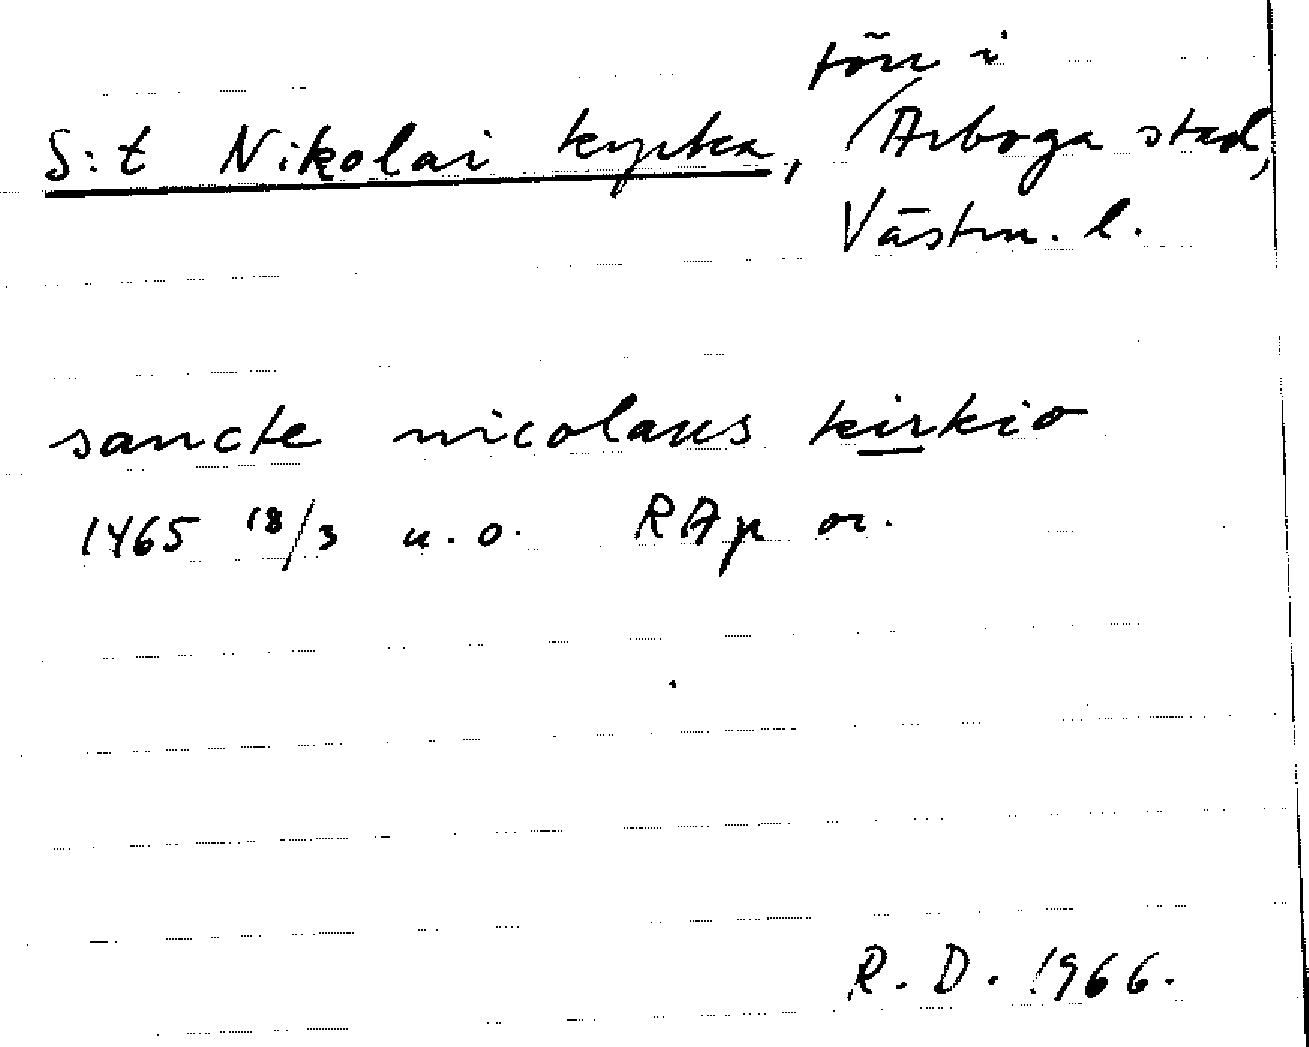 förr i
S:t Nikolai kyrka, Arboga stad,
Västm. l.
sancte nicolaus kirkio
1465 18/3 u. o. RAp or.
R. D. 1966.